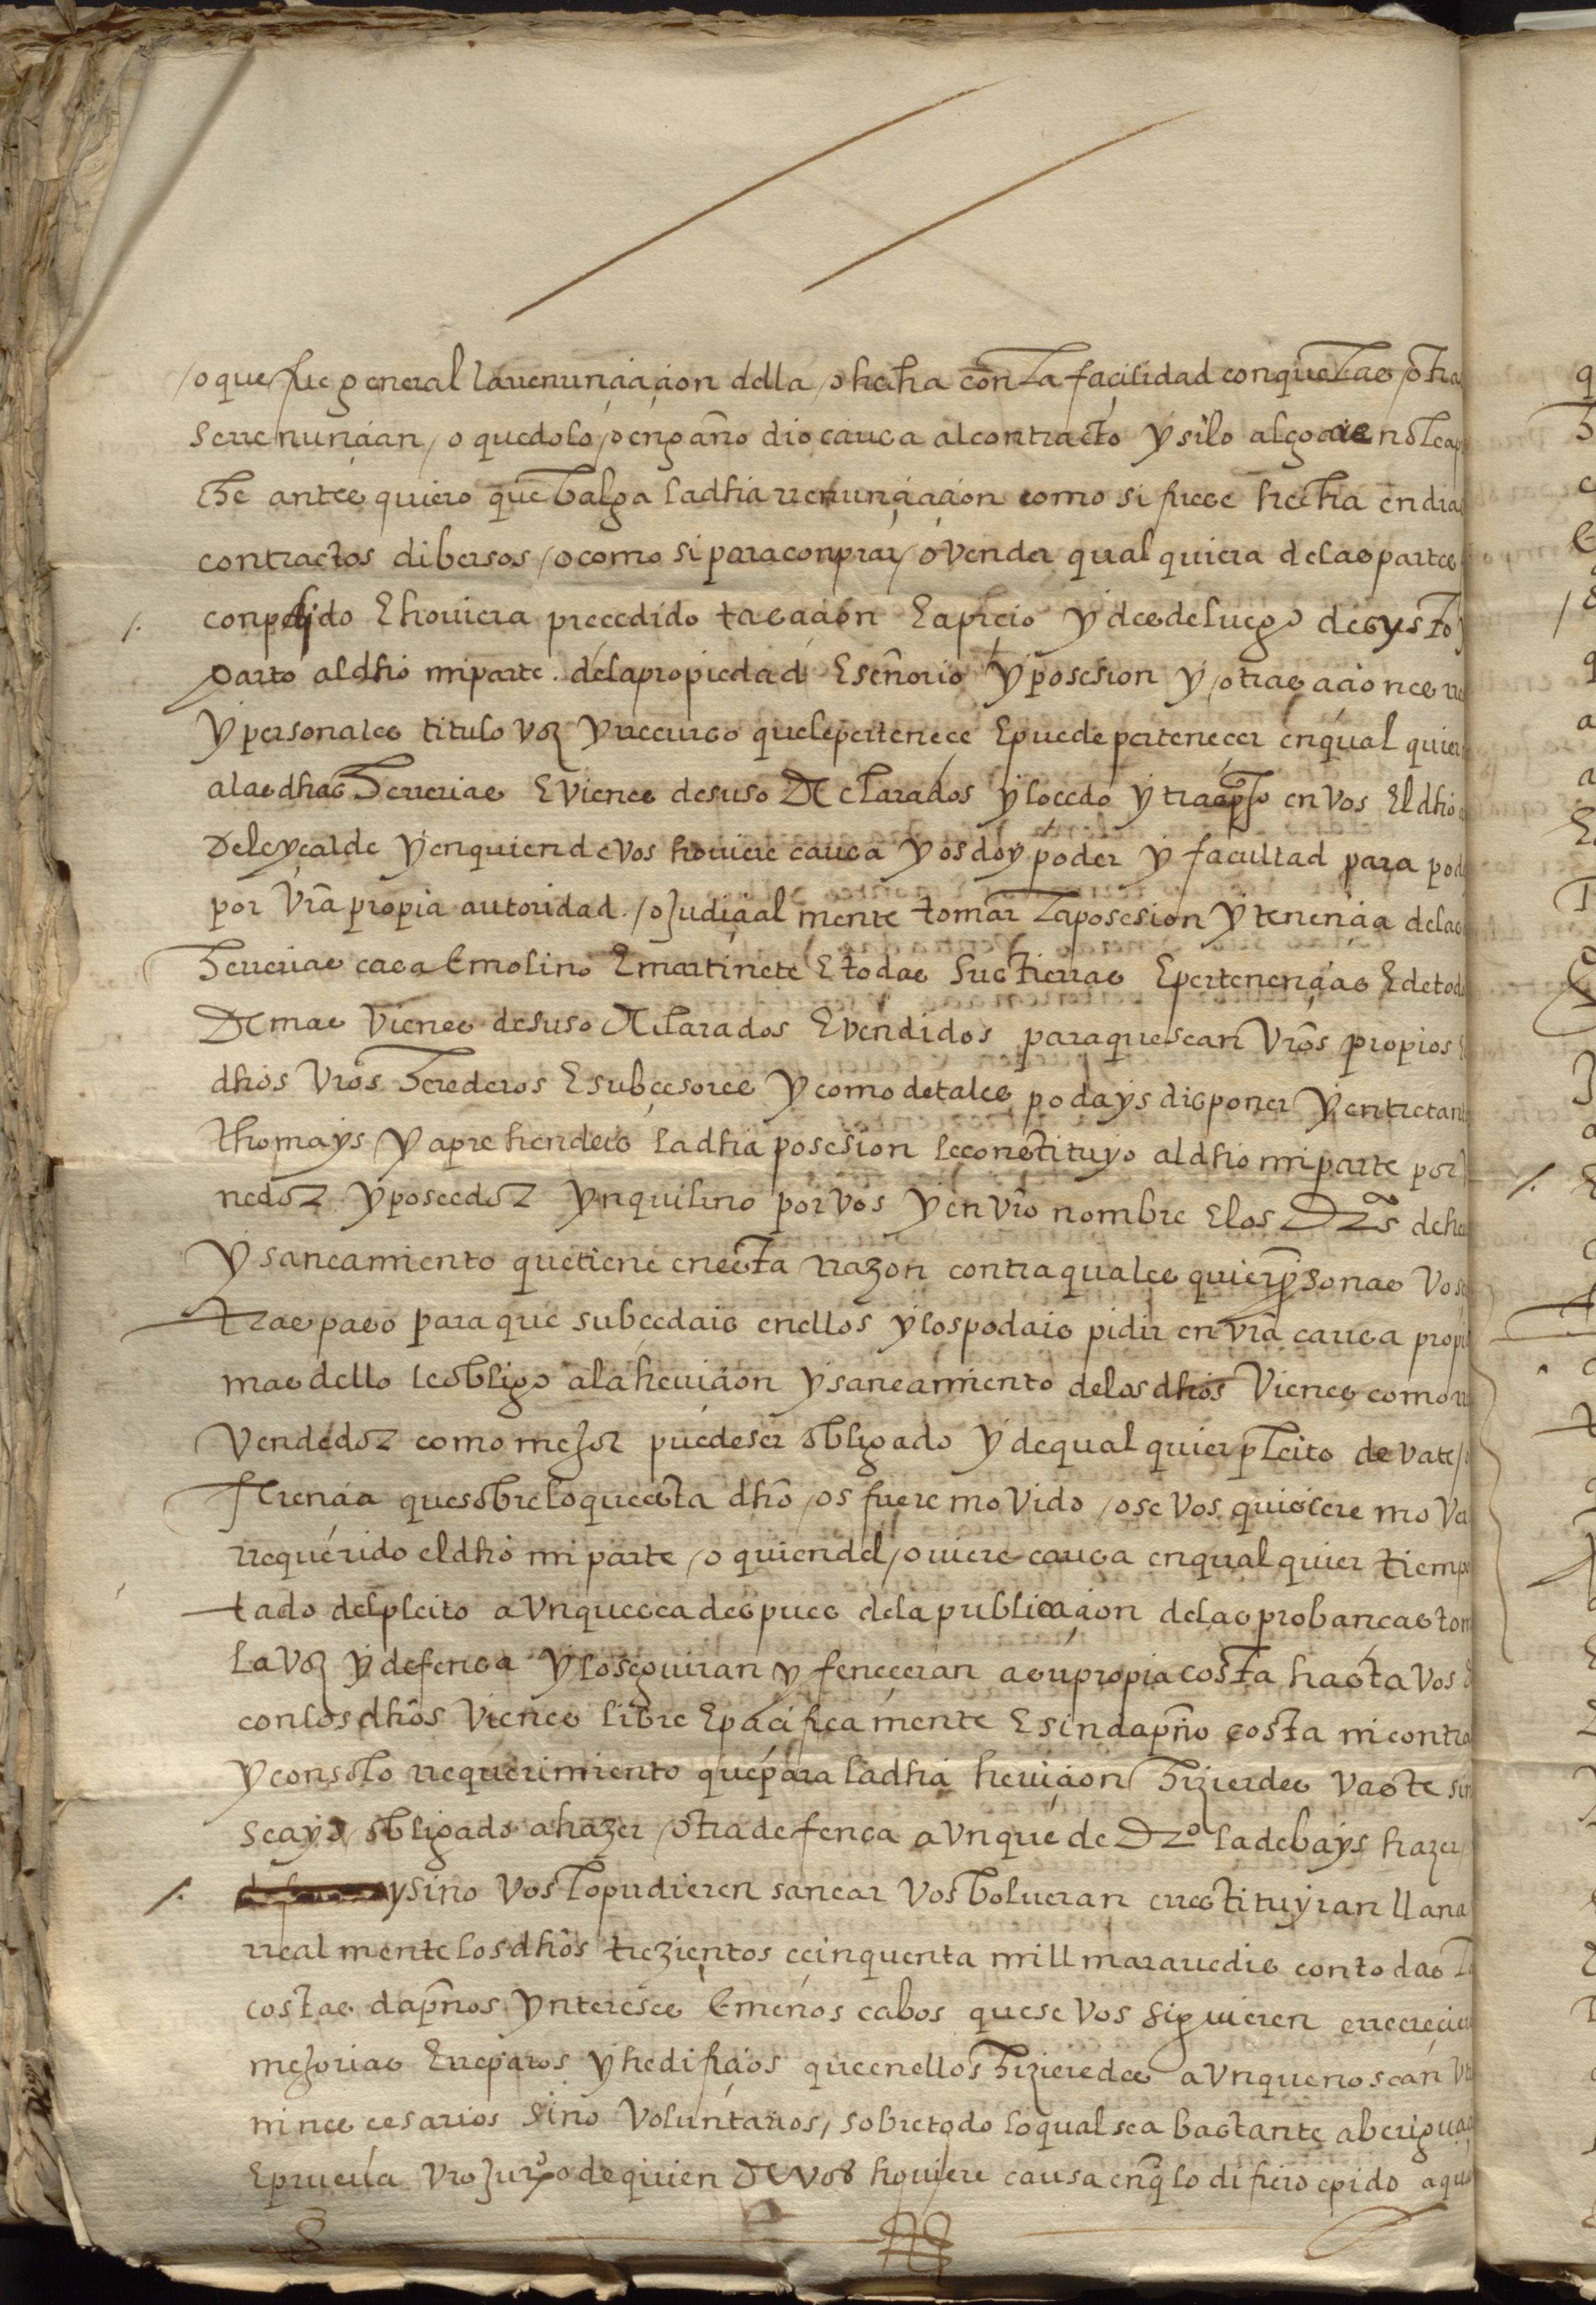 o que fue general la rrenunciacion della o hecha con la facilidad con que las otra
se rrenuncian o que dolo o engaño dio causa al contracto y si lo alegare no le ap
che antes quiero que balga la dha rrenunciacion como si fuese hecha en dia
contractos dibersos o como si para conprar o vender qual quiera de las partes
conpelido E houiera precedido tasacion E aprecio y desde luego desysto
parto al dho mi parte . de la propiedad E señorio y posesion y otras aciones rre
y personales titulo voz y rrecurso que le pertenece E puede pertenecer en qual quier
a las dhas herrerias E vienes de suso Declarados y lo cedo y traspaso en vos El dho
De leyçalde y en quien de vos houiere causa y os doy poder y facultad para pod
por vrã propia autoridad . o Judicial mente tomar la posesion y tenencia de las
herrerias casa E molino E martinete E todas sus tierras E pertenencias E de tod
Demas vienes de suso Declarados E vendidos para que sean vrõs propios
dhos vrõs herederos E subcesores y como de tales podays disponer y entretan
thomays y aprehendeis la dha posesion le constituyo al dho mi parte por
nedor y poseedor ynquilino por vos y en vrõ nombre E los Drõs de heu
y saneamiento que tiene en esta rrazon contra quales quier psonas vos
traspaso para que subcedais en ellos y los podais pidir en vrã causa propi
mas dello le obligo a la heuicion y saneamiento de los dhos vienes como rr
vendedor como mejor puede ser obligado y de qual quier pleito devate
ferencia que sobre lo que esta dho os fuere movido o se vos quisiere mover
rrequerido el dho mi parte o quien del ouiere causa en qual quier tiemp
tado del pleito aunque sea despues de la publicacion de las probancas tom
la voz y defensa y lo seguiran y feneceran a su propia costa hasta vos
con los dhos vienes libre E pacifica mente E sin dapño costa ni contra
y con solo rrequerimiento que para la dha heuicion hizierdes vaste sin
seays obligado a hazer otra defensa aunque de Drõ la debays hazer
y si no vos lo pudieren sanear vos bolueran e rrestituyran llana
rreal mente los dhos trezientos e cinquenta mill marauedis con todas l
costas dapños yntereses E menos cabos que se vos siguieren e rrecrecier
mejorias E rreparos y hedificios que en ellos hizieredes aunque no sean
ni necesarios sino voluntarios, sobre todo lo qual sea bastante aberigua
E prueua vro Jurº o de quien de vos houiere causa en q lo difiero e pido a qu